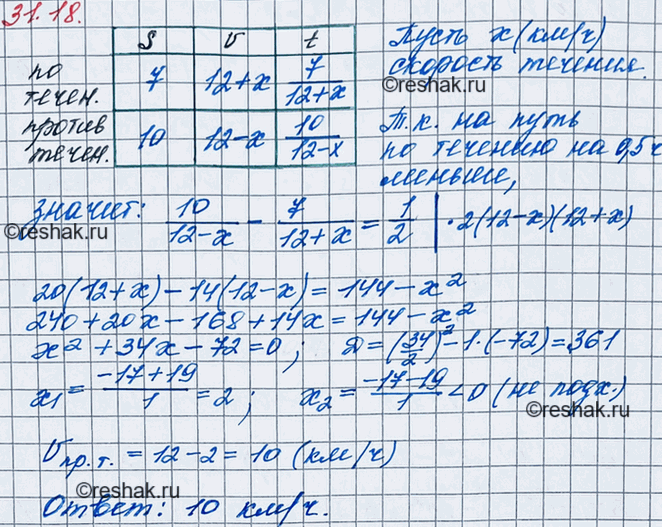 31.18.
S v t
по течен. 7 12+x 7/(12+x)
против течен. 10 12-x 10/(12-x)
Пусть x (км/ч)
скорость течения.
©reshak.ru
Т.к. на путь
по течению на 0,5 ч
меньше,
значит: 10/(12-x) - 7/(12+x) = 1/2 | ·2(12-x)(12+x)
©reshak.ru
20(12+x)-14(12-x)=144-x²
240+20x-168+14x=144-x²
x²+34x-72=0; D=(34/2)²-1·(-72)=361
x₁= (-17+19)/1 =2; x₂= (-17-19)/1 <0 (не подх.)
©reshak.ru
Vпр.т. = 12-2= 10 (км/ч)
©reshak.ru
Ответ: 10 км/ч.